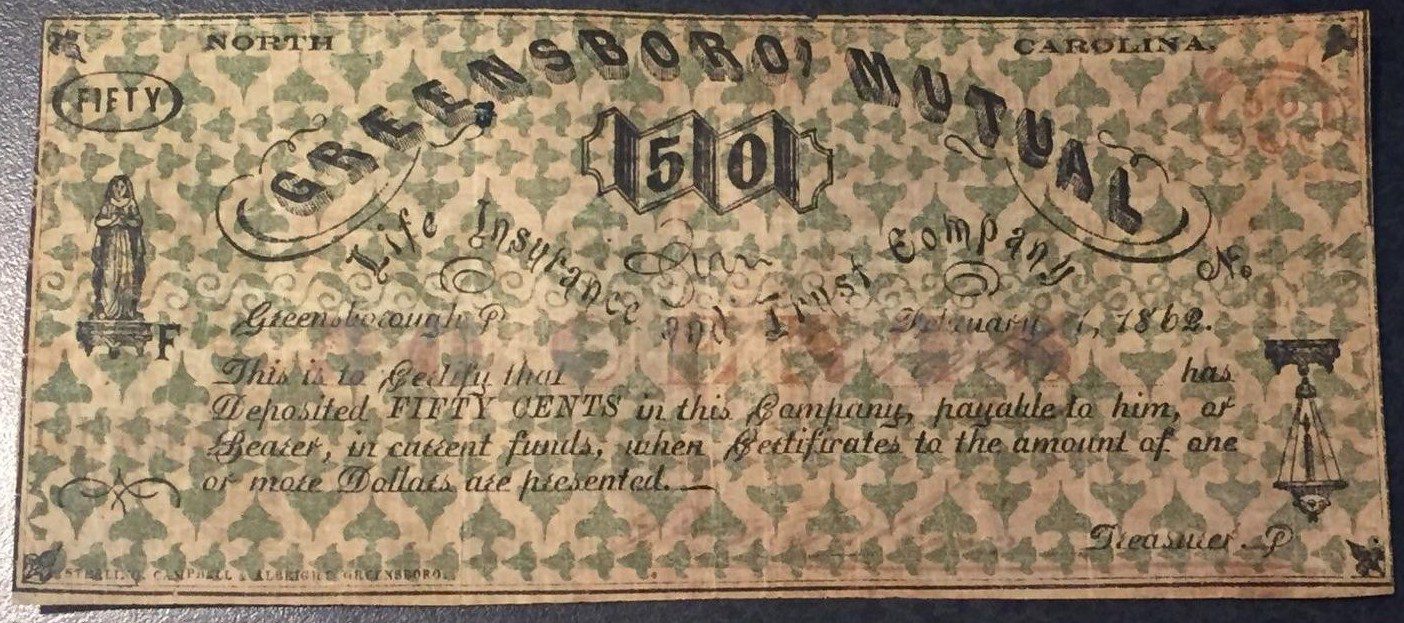 NORTH CAROLINA.
FIFTY
GREENSBORO' MUTUAL
50
50
Life Insurance and Trust Company
No.
Greensborough P February 1, 1862.
F
This is to Certify that has
Deposited FIFTY CENTS in this Company, payable to him, or
Bearer, in current funds, when Certificates to the amount of one
or more Dollars are presented.—
Treasurer. P
STERLING, CAMPBELL & ALBRIGHT, GREENSBORO.